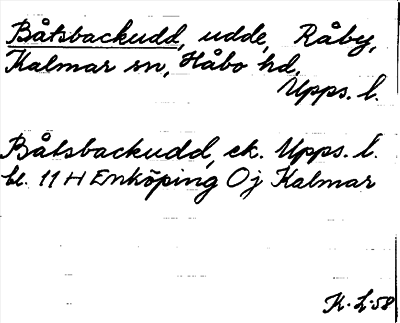 Båtsbackudd, udde, Råby,
Kalmar sn, Håbo hd.
Upps. l.
Båtsbackudd, ek. Upps. l.
bl. 11 H Enköping Oj Kalmar
K.L.58